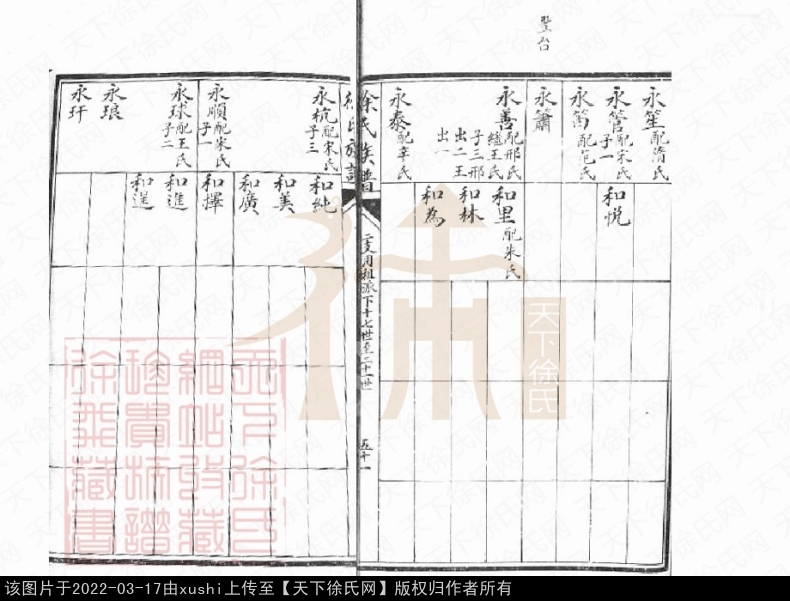 豐台
永笙配湑氏
永管配宋氏
子一
和悅
永笛配范氏
永簫
永善配邢氏
繼王氏
子三邢
出二王
出一
和里配朱氏
和林
和為
永泰配辛氏
徐氏族譜
二支月祖派下十七世至二十一世
五十一
永杭配宋氏
子三
和純
和美
和廣
永順配宋氏
子一
和擇
永球配王氏
子二
和進
和送
永琅
永玕
天下徐氏
天下徐氏網
该图片于2022-03-17由xushi上传至【天下徐氏网】版权归作者所有